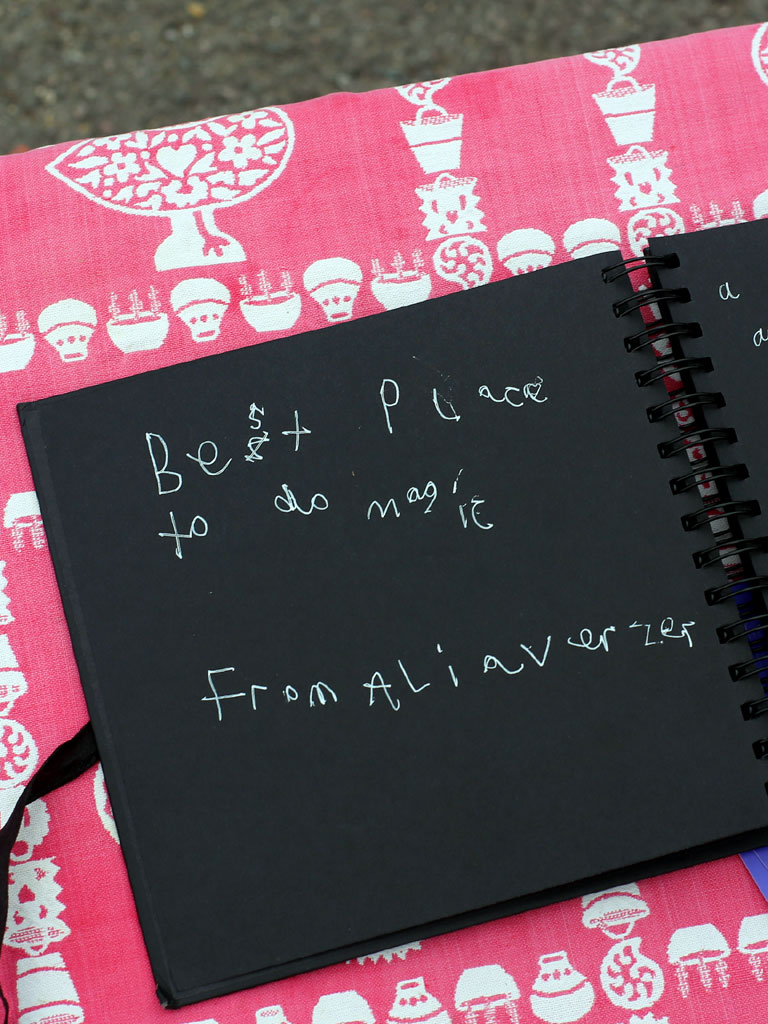 Best Place
to do magic
From ALi averzer
a
a